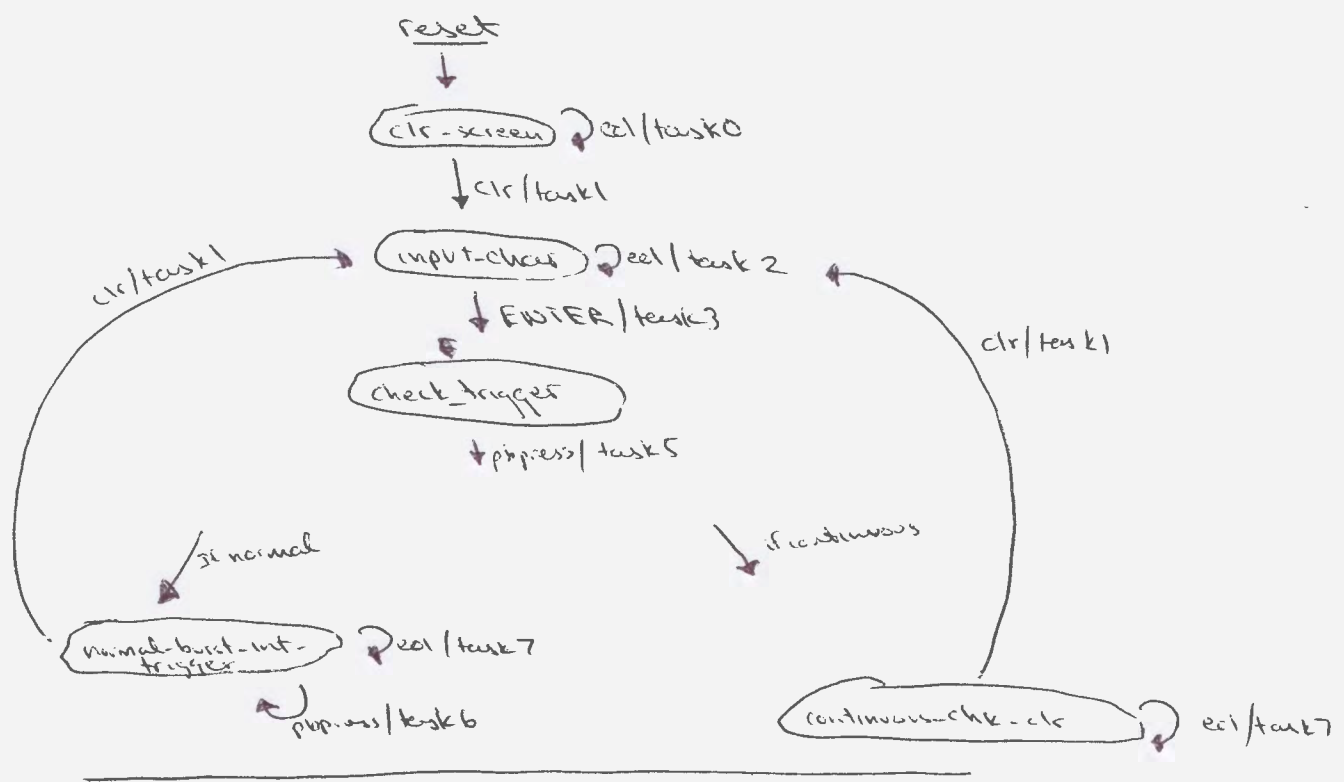 reset
clr-screen
eel/task0
clr/task1
clr/task1
input-char
eel/task 2
ENTER/task3
clr/task1
check_trigger
pbpress/task5
If normal
if continuous
normal-burst-int-
trigger
eel/task7
pbpress/task6
continuous-chk-clr
eel/task7